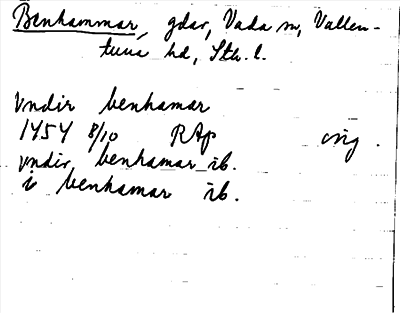 Benhammar, gdar, Vada sn, Vallen-
tuna hd, Sth. l.
Vndir benhamar
1454 8/10 RAp orig.
vndir benhamar ib.
i benhamar ib.